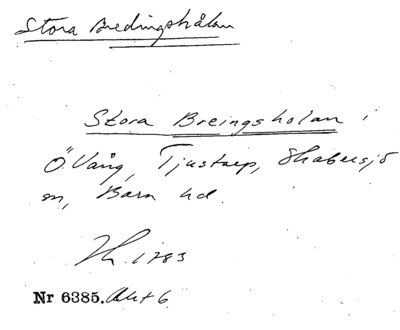 Stora Bredingshålan
Stora Breingsholan i
Ö. Vång, Tjustorp, Skabersjö
sn, Bara hd.
Th. 1783
Nr 6385. Akt 6